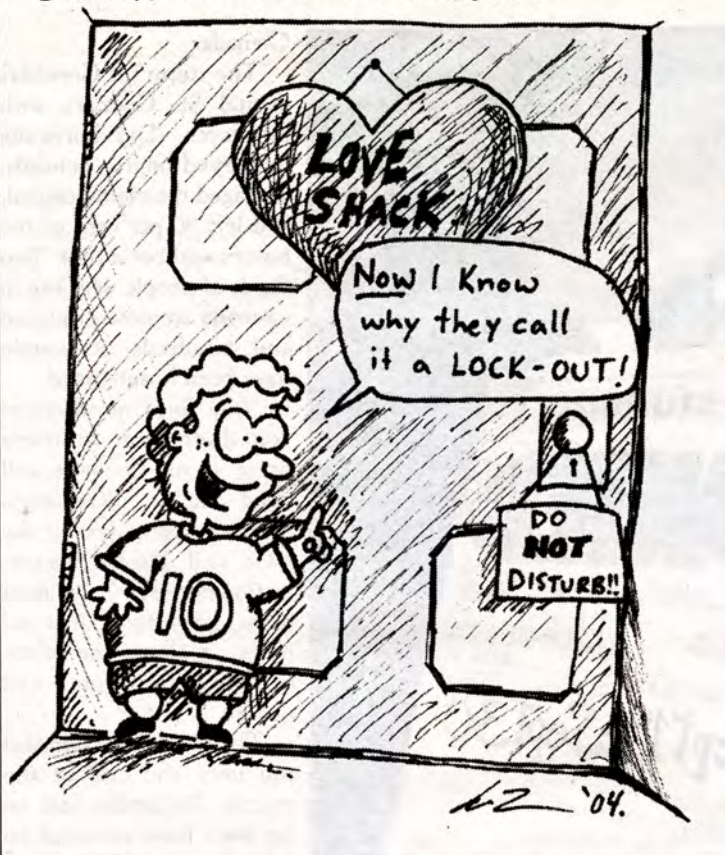 LOVE
SHACK
Now I Know
why they call
it a LOCK-OUT!
10
DO
NOT
DISTURB!!
'04.